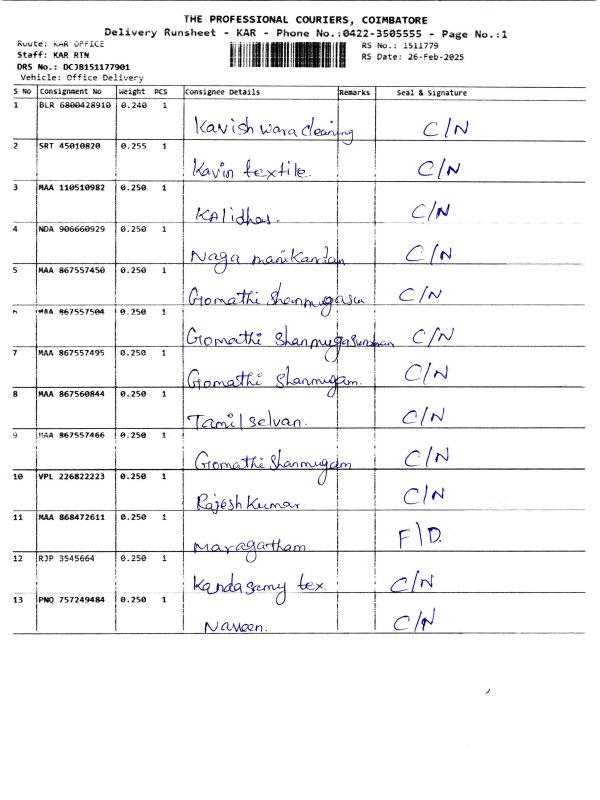 THE PROFESSIONAL COURIERS, COIMBATORE
Delivery Runsheet - KAR - Phone No.:0422-3505555 - Page No.:1
Route: KAR OFFICE
RS No.: 1511779
Staff: KAR RTN
RS Date: 26-Feb-2025
DRS No.: DCJB151177901
Vehicle: Office Delivery
S No Consignment No Weight PCS Consignee Details Remarks Seal & Signature
1 BLR 6800428910 0.240 1 Kavish wara cleaning C/N
2 SRT 45010820 0.255 1 Kavin textile. C/N
3 MAA 110510982 0.250 1 Kalidhas. C/N
4 NDA 906660929 0.250 1 Naga manikantan C/N
5 MAA 867557450 0.250 1 Gomathi Shanmugasun C/N
6 MAA 867557504 0.250 1 Gomathi Shanmugasundran C/N
7 MAA 867557495 0.250 1 Gomathi Shanmugam. C/N
8 MAA 867560844 0.250 1 Tamil selvan. C/N
9 MAA 867557466 0.250 1 Gomathi Shanmugam C/N
10 VPL 226822223 0.250 1 Rajesh Kumar C/N
11 MAA 868472611 0.250 1 Maragatham F/D.
12 RJP 3545664 0.250 1 Kandasamy tex. C/N
13 PNQ 757249484 0.250 1 Naveen. C/N